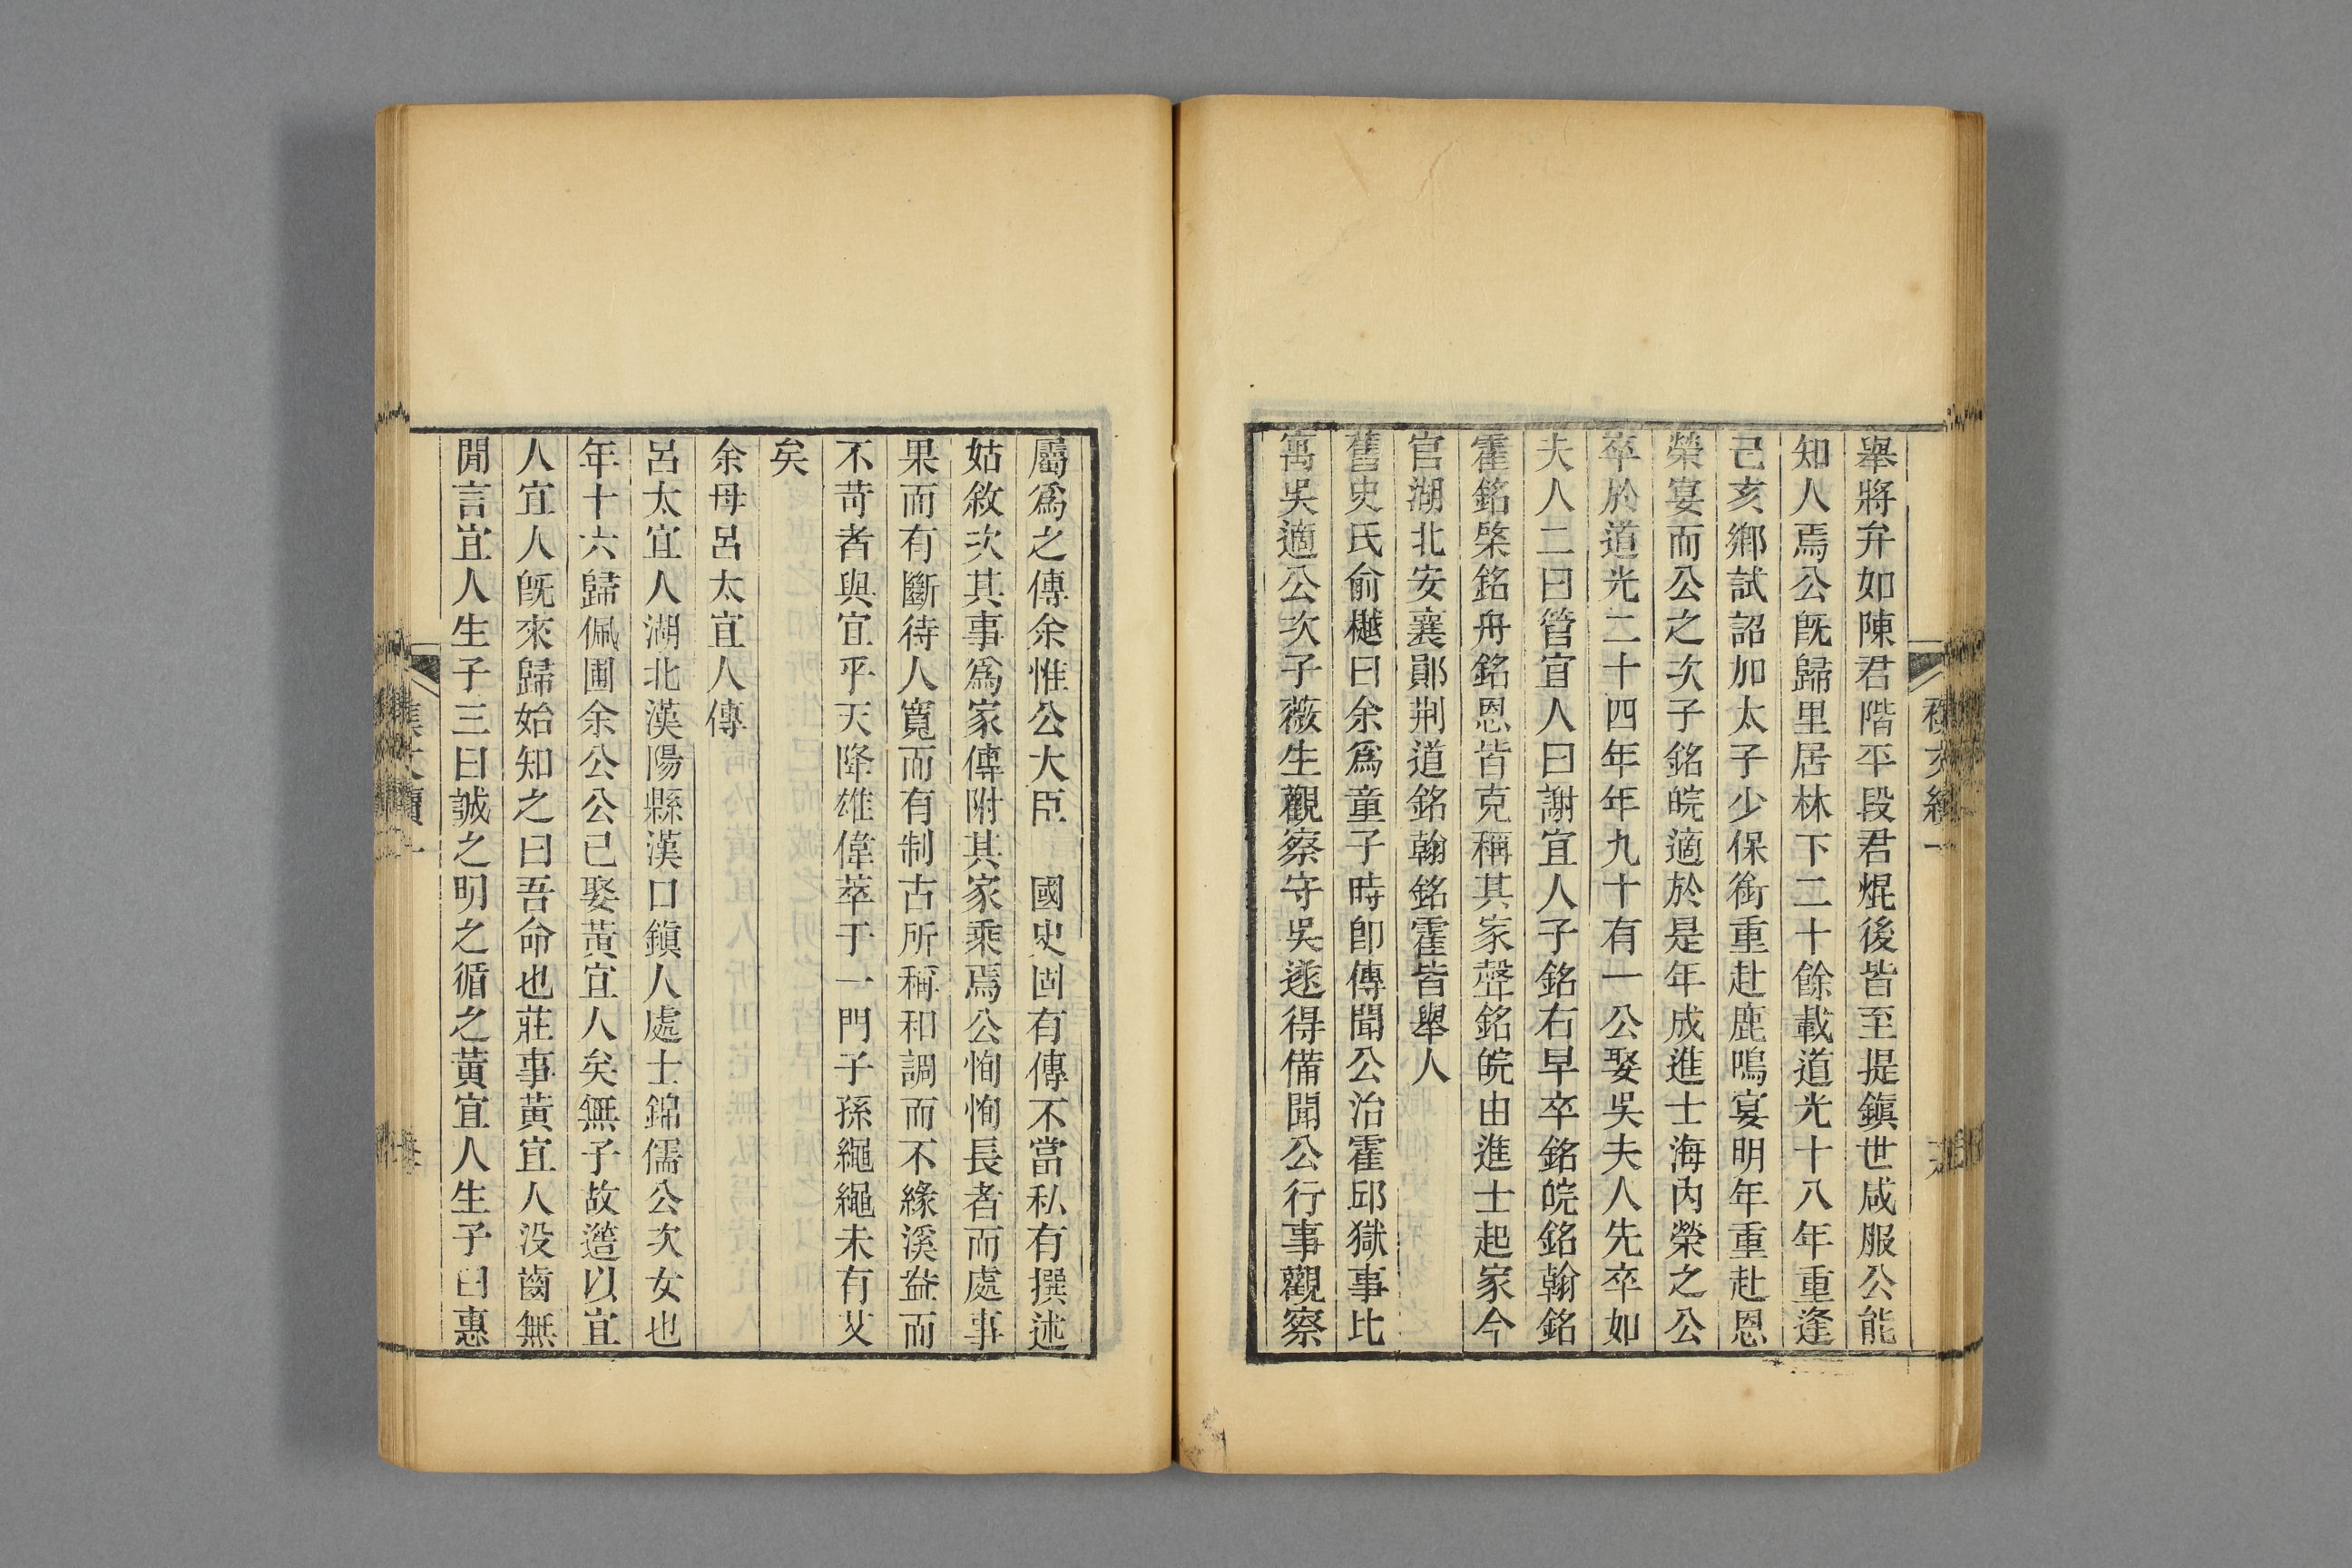 舉將弁如陳君階平段君焜後皆至提鎭世咸服公能
知人焉公旣歸里居林下二十餘載道光十八年重逢
己亥鄕試詔加太子少保銜重赴鹿鳴宴明年重赴恩
榮宴而公之次子銘皖適於是年成進士海內榮之公
卒於道光二十四年年九十有一公娶吳夫人先卒如
夫人二曰管宜人曰謝宜人子銘右早卒銘皖銘翰銘
霍銘棨銘舟銘恩皆克稱其家聲銘皖由進士起家今
官湖北安襄鄖荆道銘翰銘霍皆舉人
舊史氏俞樾曰余爲童子時卽傳聞公治霍邱獄事比
寓吳適公次子薇生觀察守吳遂得備聞公行事觀察
屬爲之傳余惟公大臣　國史固有傳不當私有撰述
姑敘次其事爲家傳附其家乘焉公恂恂長者而處事
果而有斷待人寬而有制古所稱和調而不緣溪盎而
不苛者與宜乎天降雄偉萃于一門子孫繩繩未有艾
矣
余母呂太宜人傳
呂太宜人湖北漢陽縣漢口鎭人處士錦儒公次女也
年十六歸佩圃余公公已娶黃宜人矣無子故簉以宜
人宜人旣來歸始知之曰吾命也莊事黃宜人没齒無
閒言宜人生子三曰誠之明之循之黃宜人生子曰惠